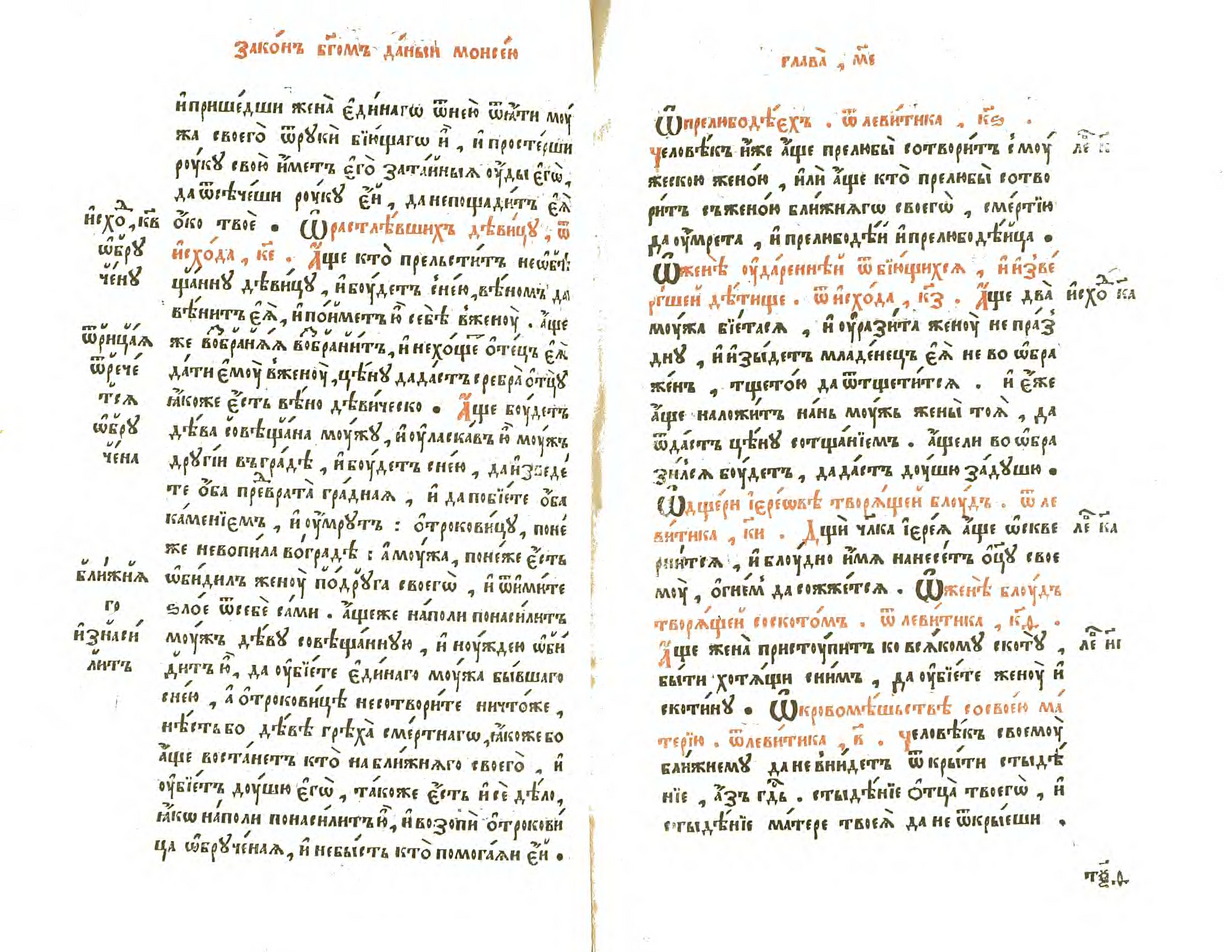 Зако́нъ бг҃омъ да́ныи моисе́ю
и҆прише́дши жена̀ є҆ди́нагѡ ѿнею̀ ѿѧ́ти моу́
жа своего̀ ѿруки́ бїю́щагѡ и҆̀ , и҆просте́рши
роу́ку свою̀ и҆́метъ є҆го̀ зата́йныѧ оу҆́ды є҆гѡ̀,
да ѿсѣче́ши роу́ку є҆́й , данепощади́тъ є҆ѧ̀
и҆схо́д , к҃в
о҆́ко твоѐ . Ѡ҆растлѣ́вшихъ дѣви́цу , ѿ
ѡ҆бру
чену
и҆схо́да , к҃е . А҆́ще кто̀ прельсти́тъ неѡ҆бѣ
ща́нну дѣви́цу , и҆боу́детъ сне́ю , вѣ́номъ да
вѣни́тъ є҆ѧ̀ , и҆по́йметъ ю҆̀ себѣ̀ вженоу̀ . а҆́ще
ѿрица́ѧ
ѿрече́
тсѧ
же вобранѧ́ѧ вобрани́тъ , и҆нехо́щетъ ѻ҆те́цъ є҆ѧ̀
да́ти є҆моу̀ вженоу̀ , цѣ́ну дада́стъ сребра̀ ѻ҆тцу̀
ꙗ҆́коже є҆́сть вѣ́но дѣви́ческо . А҆́ще боу́детъ
ѡ҆бру
чена
дѣ́ва совѣща́на моу́жу , и҆оу҆ласка́въ ю҆̀ моу́жъ
другі́и въгра́дѣ , и҆боу́детъ сне́ю , даи҆зведе́
те ѻ҆́ба превра́та гра́днаѧ , и҆ да побїе́те ѻ҆́ба
ка́менїемъ , и҆ оу҆́мрутъ : ѻ҆трокови́цу , поне́
же невопи́ла во гра́дѣ : а҆моу́жа , поне́же є҆́сть
бли́жнѧ
го
ѡ҆би́дилъ женоу̀ по́друга своегѡ̀ , и҆ ѿими́те
ѕло́е ѿсебѐ са́ми . а҆́щеже на́поли понаси́литъ
и҆знаси́
литъ
моу́жъ дѣ́ву совѣща́нную , и҆ ноу́ждею ѡ҆би
дитъ ю҆̀ , да оу҆бїе́те є҆ди́наго моу́жа бы́вшаго
сне́ю , а҆ ѻ҆трокови́цѣ несотвори́те ничто́же ,
нѣ́стьбо дѣ́вѣ грѣха̀ сме́ртнагѡ , ꙗ҆́коже бо
а҆́ще воста́нетъ кто̀ набли́жнѧго своего̀ , и҆
оу҆бїе́тъ доу́шю є҆гѡ̀ , та́коже є҆́сть и҆ сѐ дѣ́ло ,
ꙗ҆́кѡ на́поли понаси́литъ ю҆̀ , и҆возопѝ ѻ҆трокови́
ца ѡ҆бруче́наѧ , и҆ небы́сть кто̀ помога́ѧи є҆́й .
глава̀ , м҃е
Ѡ҆прелюбодѣ́ехъ . ѿ леви́тика , к҃ѕ .
Человѣ́къ и҆́же а҆́ще прелюбы̀ сотвори́тъ с моу́
ле к҃
жескою жено́ю , и҆лѝ а҆́ще кто̀ прелюбы̀ сотво
ри́тъ съжено́ю бли́жнѧгѡ своегѡ̀ , сме́ртїю
да оу҆́мрета , и҆прелюбодѣ́и и҆прелюбодѣ́ица .
Ѡ҆женѣ̀ оу҆да́реннѣи ѿ бїю́щихсѧ , и҆ и҆зве́
ргшей дѣ́тище . ѿ и҆схо́да , к҃з . А҆́ще два̀
и҆схо́д к҃а
моу́жа бїе́тасѧ , и҆ оу҆рази́та женоу̀ не пра́з
дну , и҆ и҆зы́детъ младе́нецъ є҆ѧ̀ не во ѡ҆бра
же́нъ , тщето́ю да ѿтщети́тсѧ . и҆ є҆́же
а҆́ще наложи́тъ на́нь моу́жь жены̀ тоѧ̀ , да
ѿда́стъ цѣ́ну сотща́нїемъ . а҆́щели во ѡ҆бра
зи́лсѧ боу́детъ , дада́стъ доу́шю за́душю .
Ѡ҆дще́ри і҆ере́овѣ творѧ́щей блоу́дъ . ѿ ле
ви́тика , к҃и . Дщѝ чл҃ка і҆ере́ѧ а҆́ще ѡ҆скве
ле к҃а
рни́тсѧ , и҆ блоу́дно и҆́мѧ нанесе́тъ ѻ҆ц҃у̀ свое
моу̀ , ѻ҆гне́м да сожже́тсѧ . Ѡ҆женѣ̀ блоу́дъ
творѧ́щей соско́томъ . ѿ леви́тика , к҃ѳ .
А҆́ще жена̀ пристоу́питъ ко всѧ́кому скоту̀ ,
ле и҃і
бы́ти хотѧ́щи сни́мъ , да оу҆бїе́те женоу̀ и҆
скоти́ну . Ѡ҆кровомѣ́шьствѣ сосвое́ю ма́
терїю . ѿлеви́тика , в҃ . Человѣ́къ своемоу̀
бли́жнему да не вни́детъ ѿкры́ти стыдѣ́
нїе , а҆́зъ гд҃ь . стыдѣ́нїе ѻ҆тца̀ твоегѡ̀ , и҆
стыдѣ́нїе ма́тере твоеѧ̀ да не ѿкры́еши .